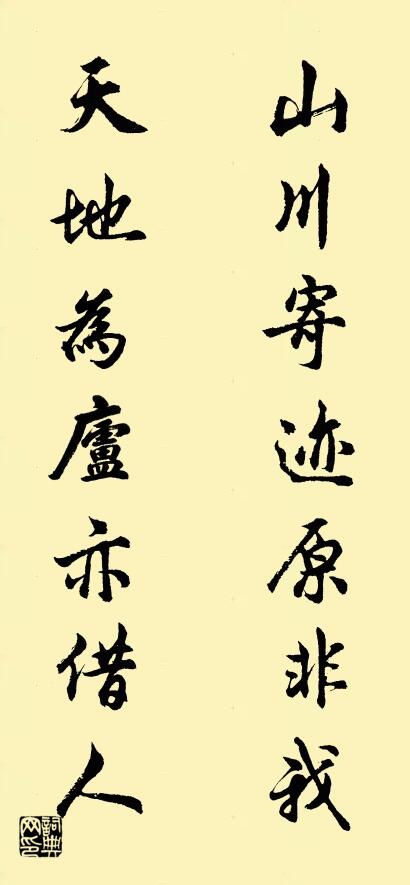 山川寄迹原非我
天地為廬亦借人
詞典網印